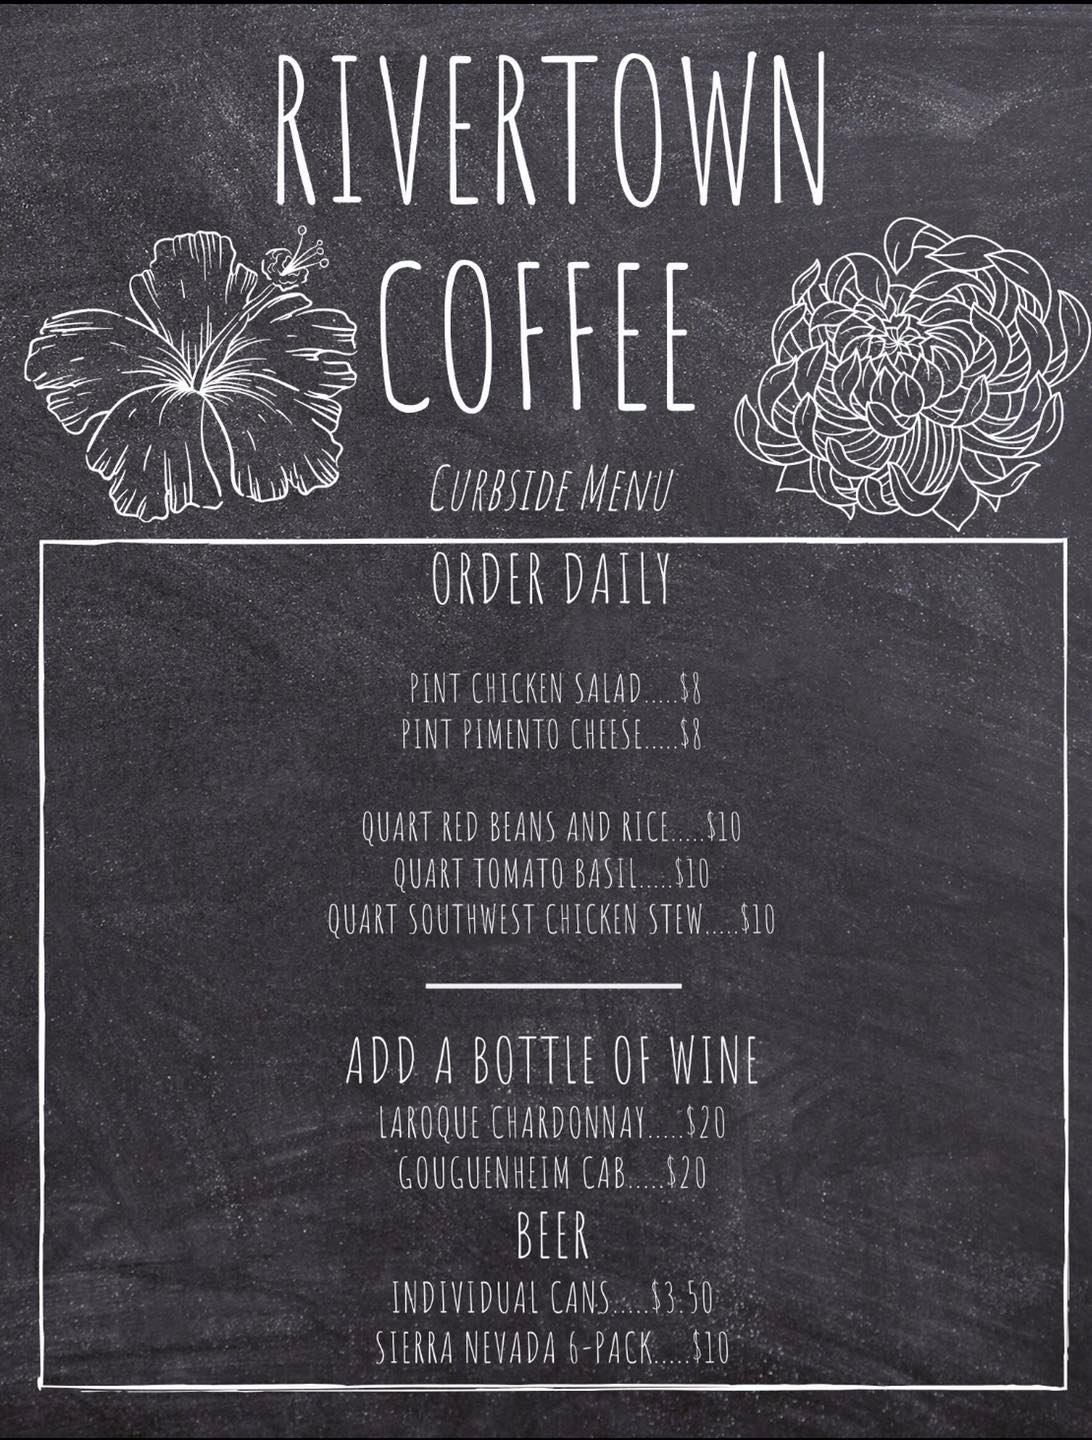 RIVERTOWN
COFFEE
CURBSIDE MENU
ORDER DAILY
PINT CHICKEN SALAD.....$8
PINT PIMENTO CHEESE.....$8
QUART RED BEANS AND RICE.....$10
QUART TOMATO BASIL.....$10
QUART SOUTHWEST CHICKEN STEW.....$10
ADD A BOTTLE OF WINE
LAROQUE CHARDONNAY.....$20
GOUGUENHEIM CAB.....$20
BEER
INDIVIDUAL CANS.....$3.50
SIERRA NEVADA 6-PACK.....$10